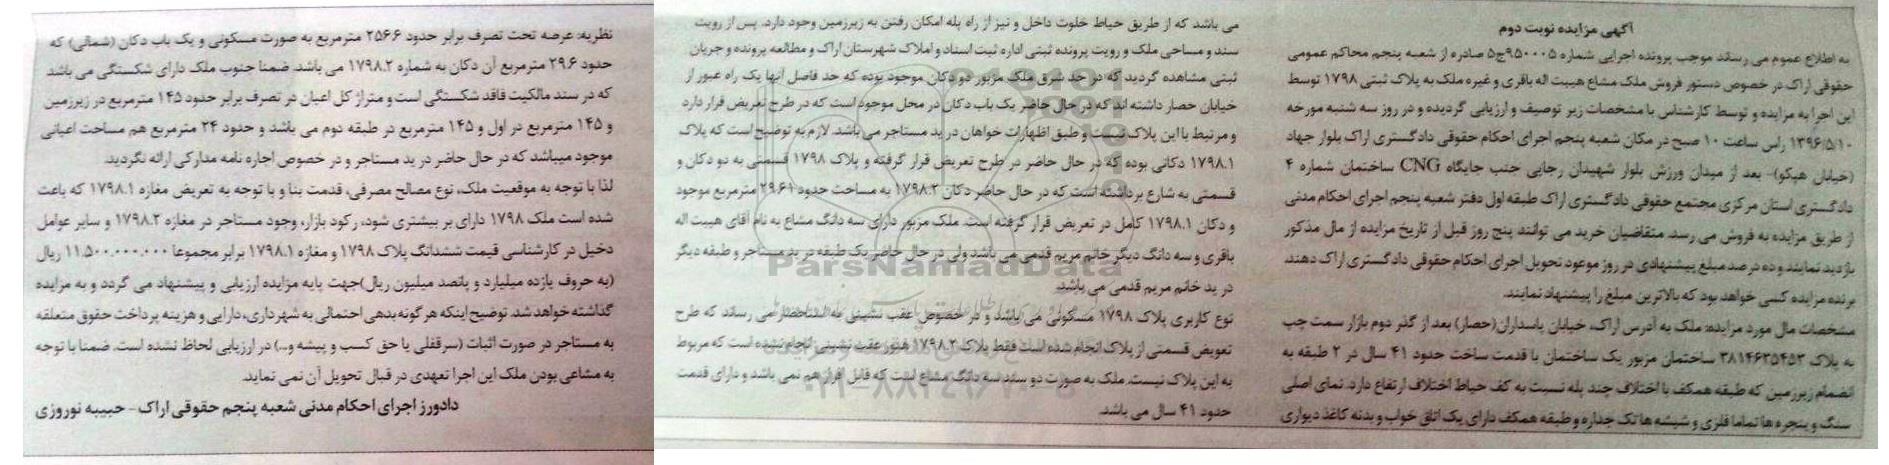 آگهی مزایده نوبت دوم
به اطلاع عموم می رساند موجب پرونده اجرایی شماره ۹۵۰۰۰۵ج۵ صادره از شعبه پنجم محاکم عمومی
حقوقی اراک در خصوص دستور فروش ملک مشاع هیبت اله باقری و غیره ملک به پلاک ثبتی ۱۷۹۸ توسط
این اجرا به مزایده و توسط کارشناس با مشخصات زیر توصیف و ارزیابی گردیده و در روز سه شنبه مورخه
۱۳۹۶/۵/۱۰ راس ساعت ۱۰ صبح در مکان شعبه پنجم اجرای احکام حقوقی دادگستری اراک بلوار جهاد
(خیابان هپکو)- بعد از میدان ورزش بلوار شهیدان رجایی جنب جایگاه CNG ساختمان شماره ۴
دادگستری استان مرکزی مجتمع حقوقی دادگستری اراک طبقه اول دفتر شعبه پنجم اجرای احکام مدنی
از طریق مزایده به فروش می رسد. متقاضیان خرید می توانند پنج روز قبل از تاریخ مزایده از مال مذکور
بازدید نمایند و ده درصد مبلغ پیشنهادی در روز موعود تحویل اجرای احکام حقوقی دادگستری اراک دهند.
برنده مزایده کسی خواهد بود که بالاترین مبلغ را پیشنهاد نمایند.
مشخصات مال مورد مزایده: ملک به آدرس اراک، خیابان پاسداران(حصار) بعد از گذر دوم بازار سمت چپ
به پلاک ۳۸۱۴۶۳۵۴۵۳ ساختمان مزبور یک ساختمان با قدمت ساخت حدود ۴۱ سال در ۲ طبقه به
انضمام زیرزمین که طبقه همکف با اختلاف چند پله نسبت به کف حیاط اختلاف ارتفاع دارد. نمای اصلی
سنگ و پنجره ها تماما فلزی و شیشه ها تک جداره و طبقه همکف دارای یک اتاق خواب و بدنه کاغذ دیواری
می باشد که از طریق حیاط خلوت داخل و نیز از راه پله امکان رفتن به زیرزمین وجود دارد. پس از رویت
سند و مساحی ملک و رویت پرونده ثبتی اداره ثبت اسناد و املاک شهرستان اراک و مطالعه پرونده و جریان
ثبتی مشاهده گردید که در حد شرق ملک مزبور دو دکان موجود بوده که حد فاصل آنها یک راه عبور از
خیابان حصار داشته اند که در حال حاضر یک باب دکان در محل موجود است که در طرح تعریض قرار دارد
و مرتبط با این پلاک نیست و طبق اظهارات خواهان در ید مستاجر می باشد. لازم به توضیح است که پلاک
۱۷۹۸.۱ دکانی بوده که در حال حاضر در طرح تعریض قرار گرفته و پلاک ۱۷۹۸ قسمتی به دو دکان و
قسمتی به شارع برداشته است که در حال حاضر دکان ۱۷۹۸.۲ به مساحت حدود ۲۹.۶۱ مترمربع موجود
و دکان ۱۷۹۸.۱ کامل در تعریض قرار گرفته است. ملک مزبور دارای سه دانگ مشاع به نام آقای هیبت اله
باقری و سه دانگ دیگر خانم مریم قدمی می باشد ولی در حال حاضر یک طبقه در ید مستاجر و طبقه دیگر
در ید خانم مریم قدمی می باشد.
نوع کاربری پلاک ۱۷۹۸ مسکونی می باشد و در خصوص عقب نشینی به استحضار می رساند که طرح
تعویض قسمتی از پلاک انجام شده است فقط پلاک ۱۷۹۸.۲ هنوز عقب نشینی انجام نشده است که مربوط
به این پلاک نیست. ملک به صورت دو سند سه دانگ مشاع است که قابل افراز هم نمی باشد و دارای قدمت
حدود ۴۱ سال می باشد.
نظریه: عرصه تحت تصرف برابر حدود ۲۵۶.۶ مترمربع به صورت مسکونی و یک باب دکان (شمالی) که
حدود ۲۹.۶ مترمربع آن دکان به شماره ۱۷۹۸.۲ می باشد. ضمنا جنوب ملک دارای شکستگی می باشد
که در سند مالکیت فاقد شکستگی است و متراژ کل اعیان در تصرف برابر حدود ۱۴۵ مترمربع در زیرزمین
و ۱۴۵ مترمربع در اول و ۱۴۵ مترمربع در طبقه دوم می باشد و حدود ۲۴ مترمربع هم مساحت اعیانی
موجود میباشد که در حال حاضر در ید مستاجر و در خصوص اجاره نامه مدارکی ارائه نگردید.
لذا با توجه به موقعیت ملک، نوع مصالح مصرفی، قدمت بنا و با توجه به تعریض مغازه ۱۷۹۸.۱ که باعث
شده است ملک ۱۷۹۸ دارای بر بیشتری شود، رکود بازار، وجود مستاجر در مغازه ۱۷۹۸.۲ و سایر عوامل
دخیل در کارشناسی قیمت ششدانگ پلاک ۱۷۹۸ و مغازه ۱۷۹۸.۱ برابر مجموعا ۱۱.۵۰۰.۰۰۰.۰۰۰ ریال
(به حروف یازده میلیارد و پانصد میلیون ریال)جهت پایه مزایده ارزیابی و پیشنهاد می گردد و به مزایده
گذاشته خواهد شد. توضیح اینکه هر گونه بدهی احتمالی به شهرداری، دارایی و هزینه پرداخت حقوق متعلقه
به مستاجر در صورت اثبات (سرقفلی یا حق کسب و پیشه و...) در ارزیابی لحاظ نشده است. ضمنا با توجه
به مشاعی بودن ملک این اجرا تعهدی در قبال تحویل آن نمی نماید.
دادورز اجرای احکام مدنی شعبه پنجم حقوقی اراک - حبیبه نوروزی
ParsNamadData